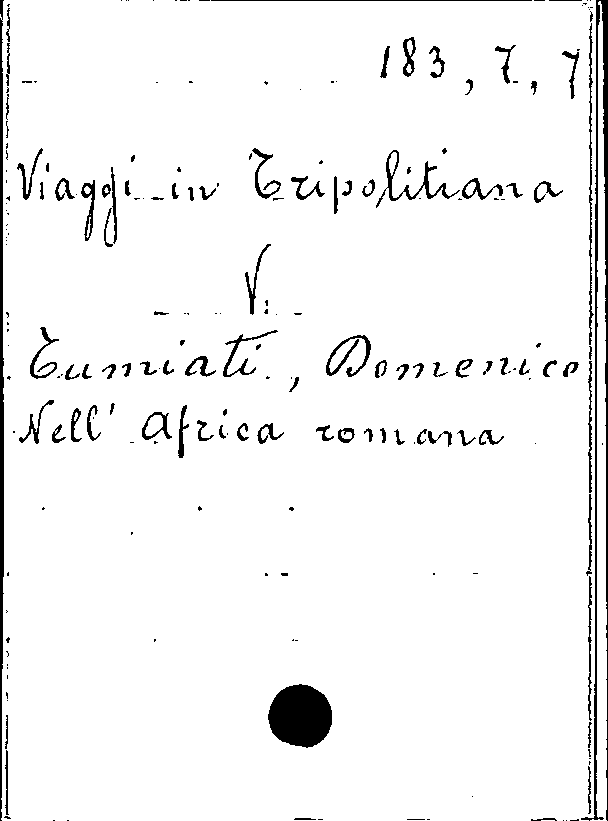 183, 7, 7
Viaggi in Tripolitiana
V.
Tumiati, Domenico
Nell' Africa romana